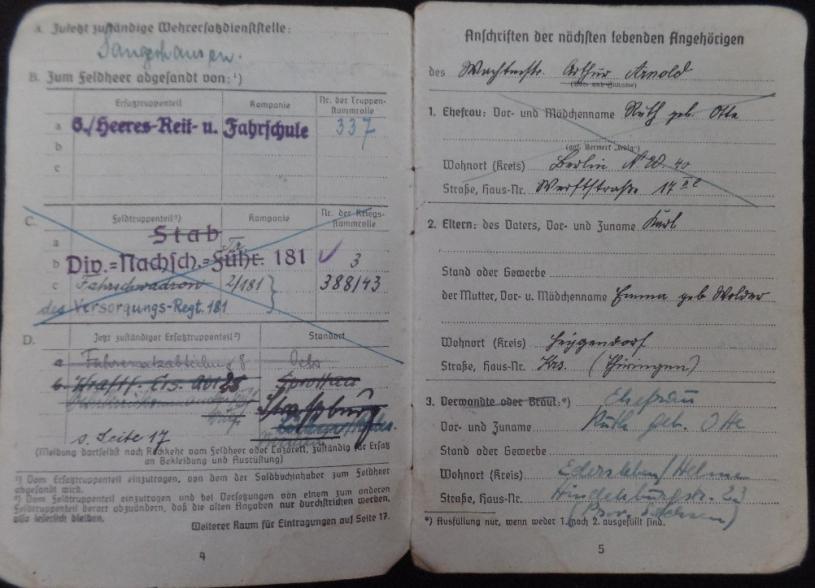 A. Zuletzt zuständige Wehrersatzdienststelle:
Sangerhausen.
B. Zum Feldheer abgesandt von:¹)
Ersatztruppenteil Kompanie Nr. der Truppen-
stammrolle
a 6./Heeres-Reit- u. Fahrschule 337
b
c
C. Feldtruppenteil²) Kompanie Nr. der Kriegs-
stammrolle
a Stab
b Div.=Nachsch.=Führ. 181 3
c Fahrschwadron 2/181 388/43
des Versorgungs-Regt. 181
D. Jetzt zuständiger Ersatztruppenteil²) Standort
a Fahrersatzabteilung 8 Oels
b. Kraftf. Ers. Abt 28 Sprottau
Straßburg
s. Seite 17
(Meldung dortselbst nach Rückkehr vom Feldheer oder Lazarett, zuständig für Ersatz
an Bekleidung und Ausrüstung)
¹) Vom Ersatztruppenteil einzutragen, von dem der Soldbuchinhaber zum Feldheer
abgesandt wird.
²) Vom Feldtruppenteil einzutragen und bei Versetzungen von einem zum anderen
Feldtruppenteil derart abzuändern, daß die alten Angaben nur durchstrichen werden,
also leserlich bleiben.
Weiterer Raum für Eintragungen auf Seite 17.
4
Anschriften der nächsten lebenden Angehörigen
des Wachtmstr. Arthur Arnold
(Vor- und Zuname)
1. Ehefrau: Vor- und Mädchenname Ruth geb. Otte
(ggf. Vermerk „ledig")
Wohnort (Kreis) Berlin N.W. 40
Straße, Haus-Nr. Werftstraße 17
2. Eltern: des Vaters, Vor- und Zuname Karl
Stand oder Gewerbe
der Mutter, Vor- u. Mädchenname Emma geb
Wohnort (Kreis) Heygendorf
Straße, Haus-Nr. Krs. (Thüringen)
3. Verwandte oder Braut:*) Ehefrau
Vor- und Zuname Ruth geb. Otte
Stand oder Gewerbe
Wohnort (Kreis) Edersleben/Helme
Straße, Haus-Nr. Hindenburgstr. 23
(Prov. Sachsen)
*) Ausfüllung nur, wenn weder 1. noch 2. ausgefüllt sind.
5